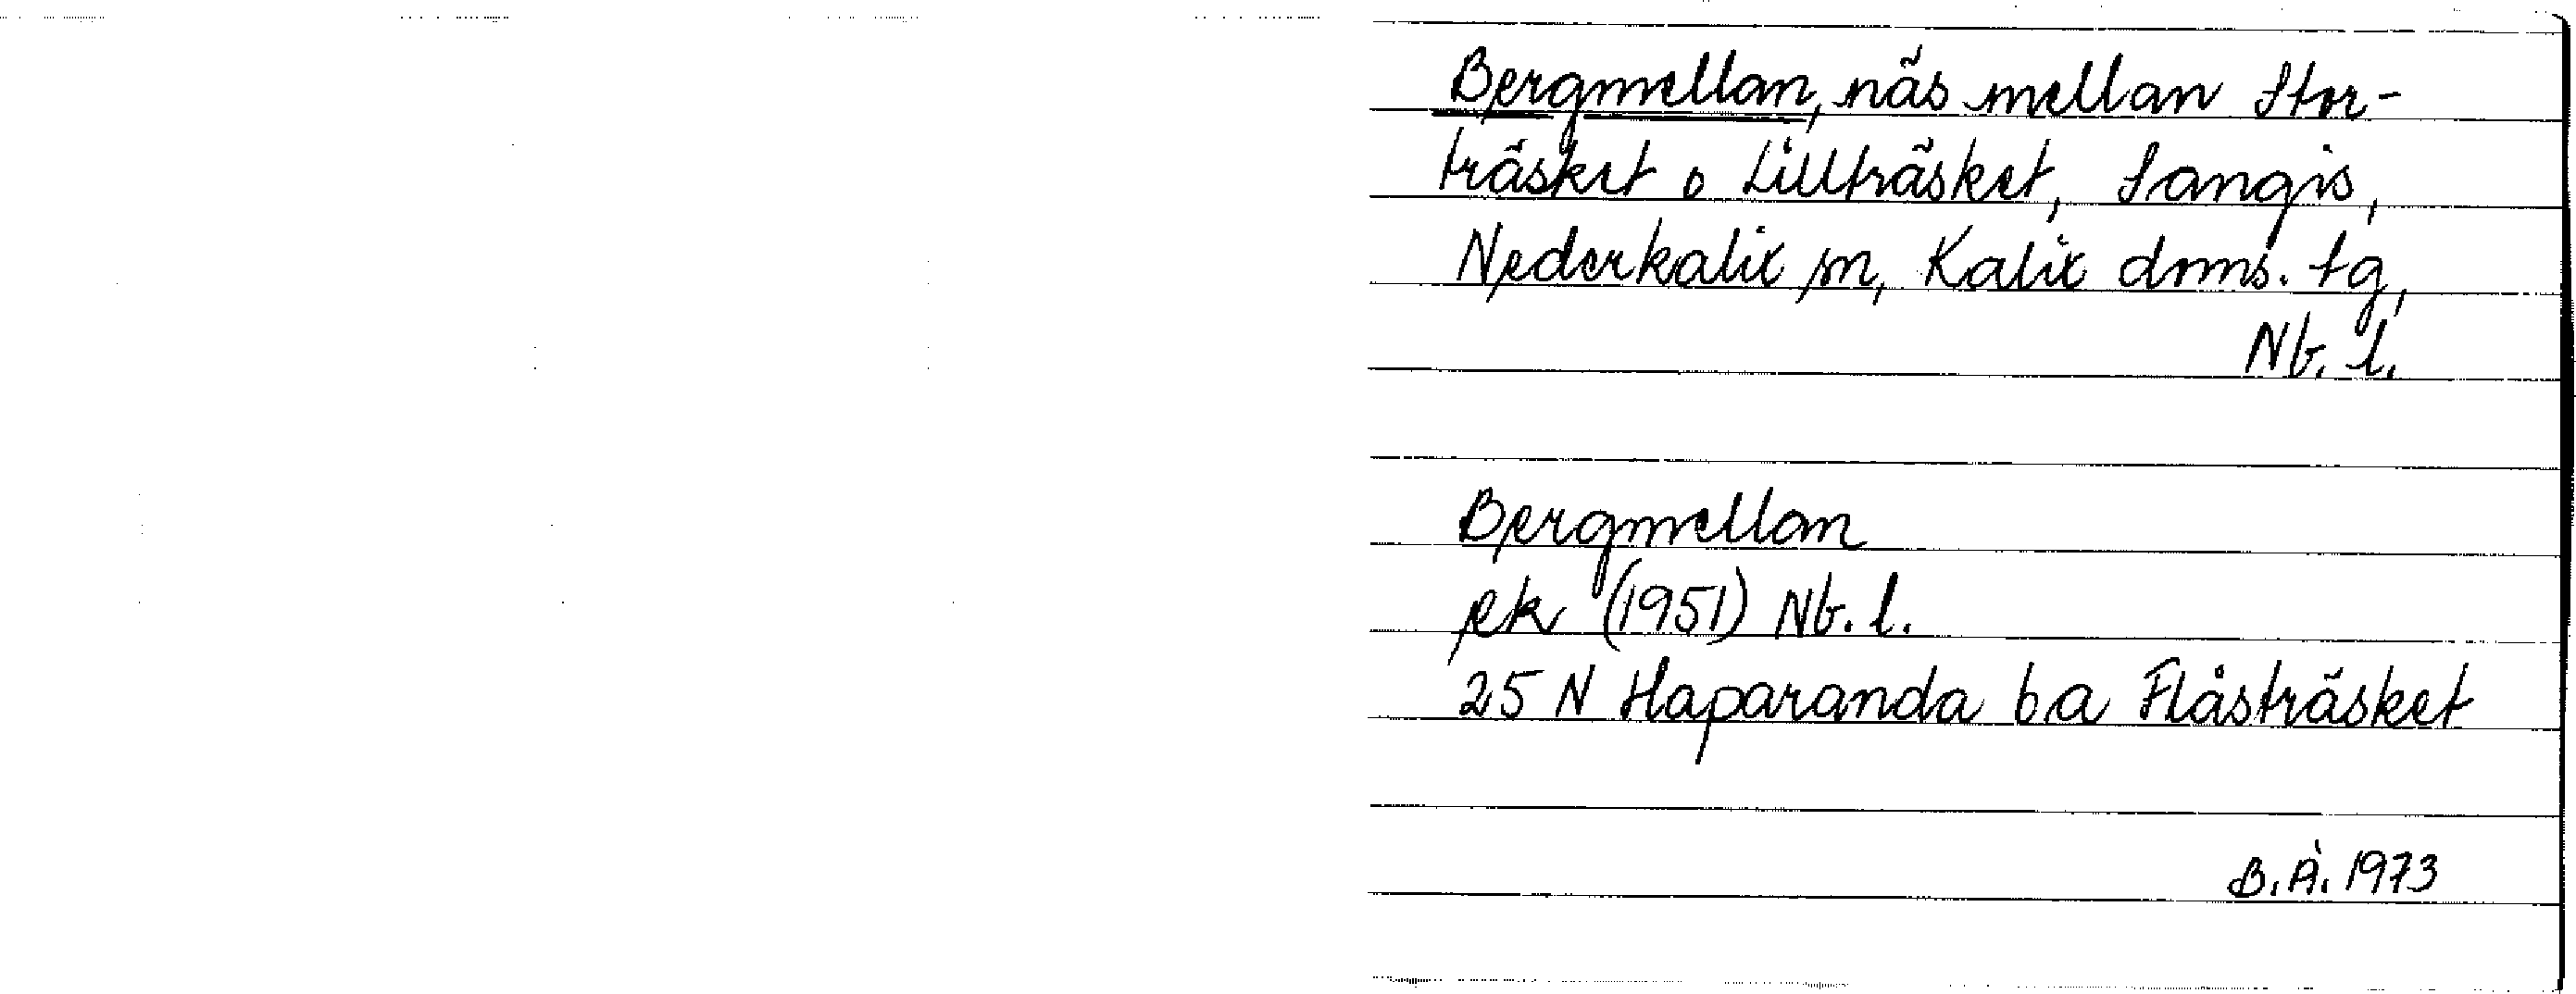 Bergmellan, näs mellan Stor-
träsket o Lillträsket, Sangis,
Nederkalix sn, Kalix doms. tg,
Nb. l.
Bergmellan
ek (1951) Nb. l.
25 N Haparanda 6a Flåsträsket
B.Å. 1973